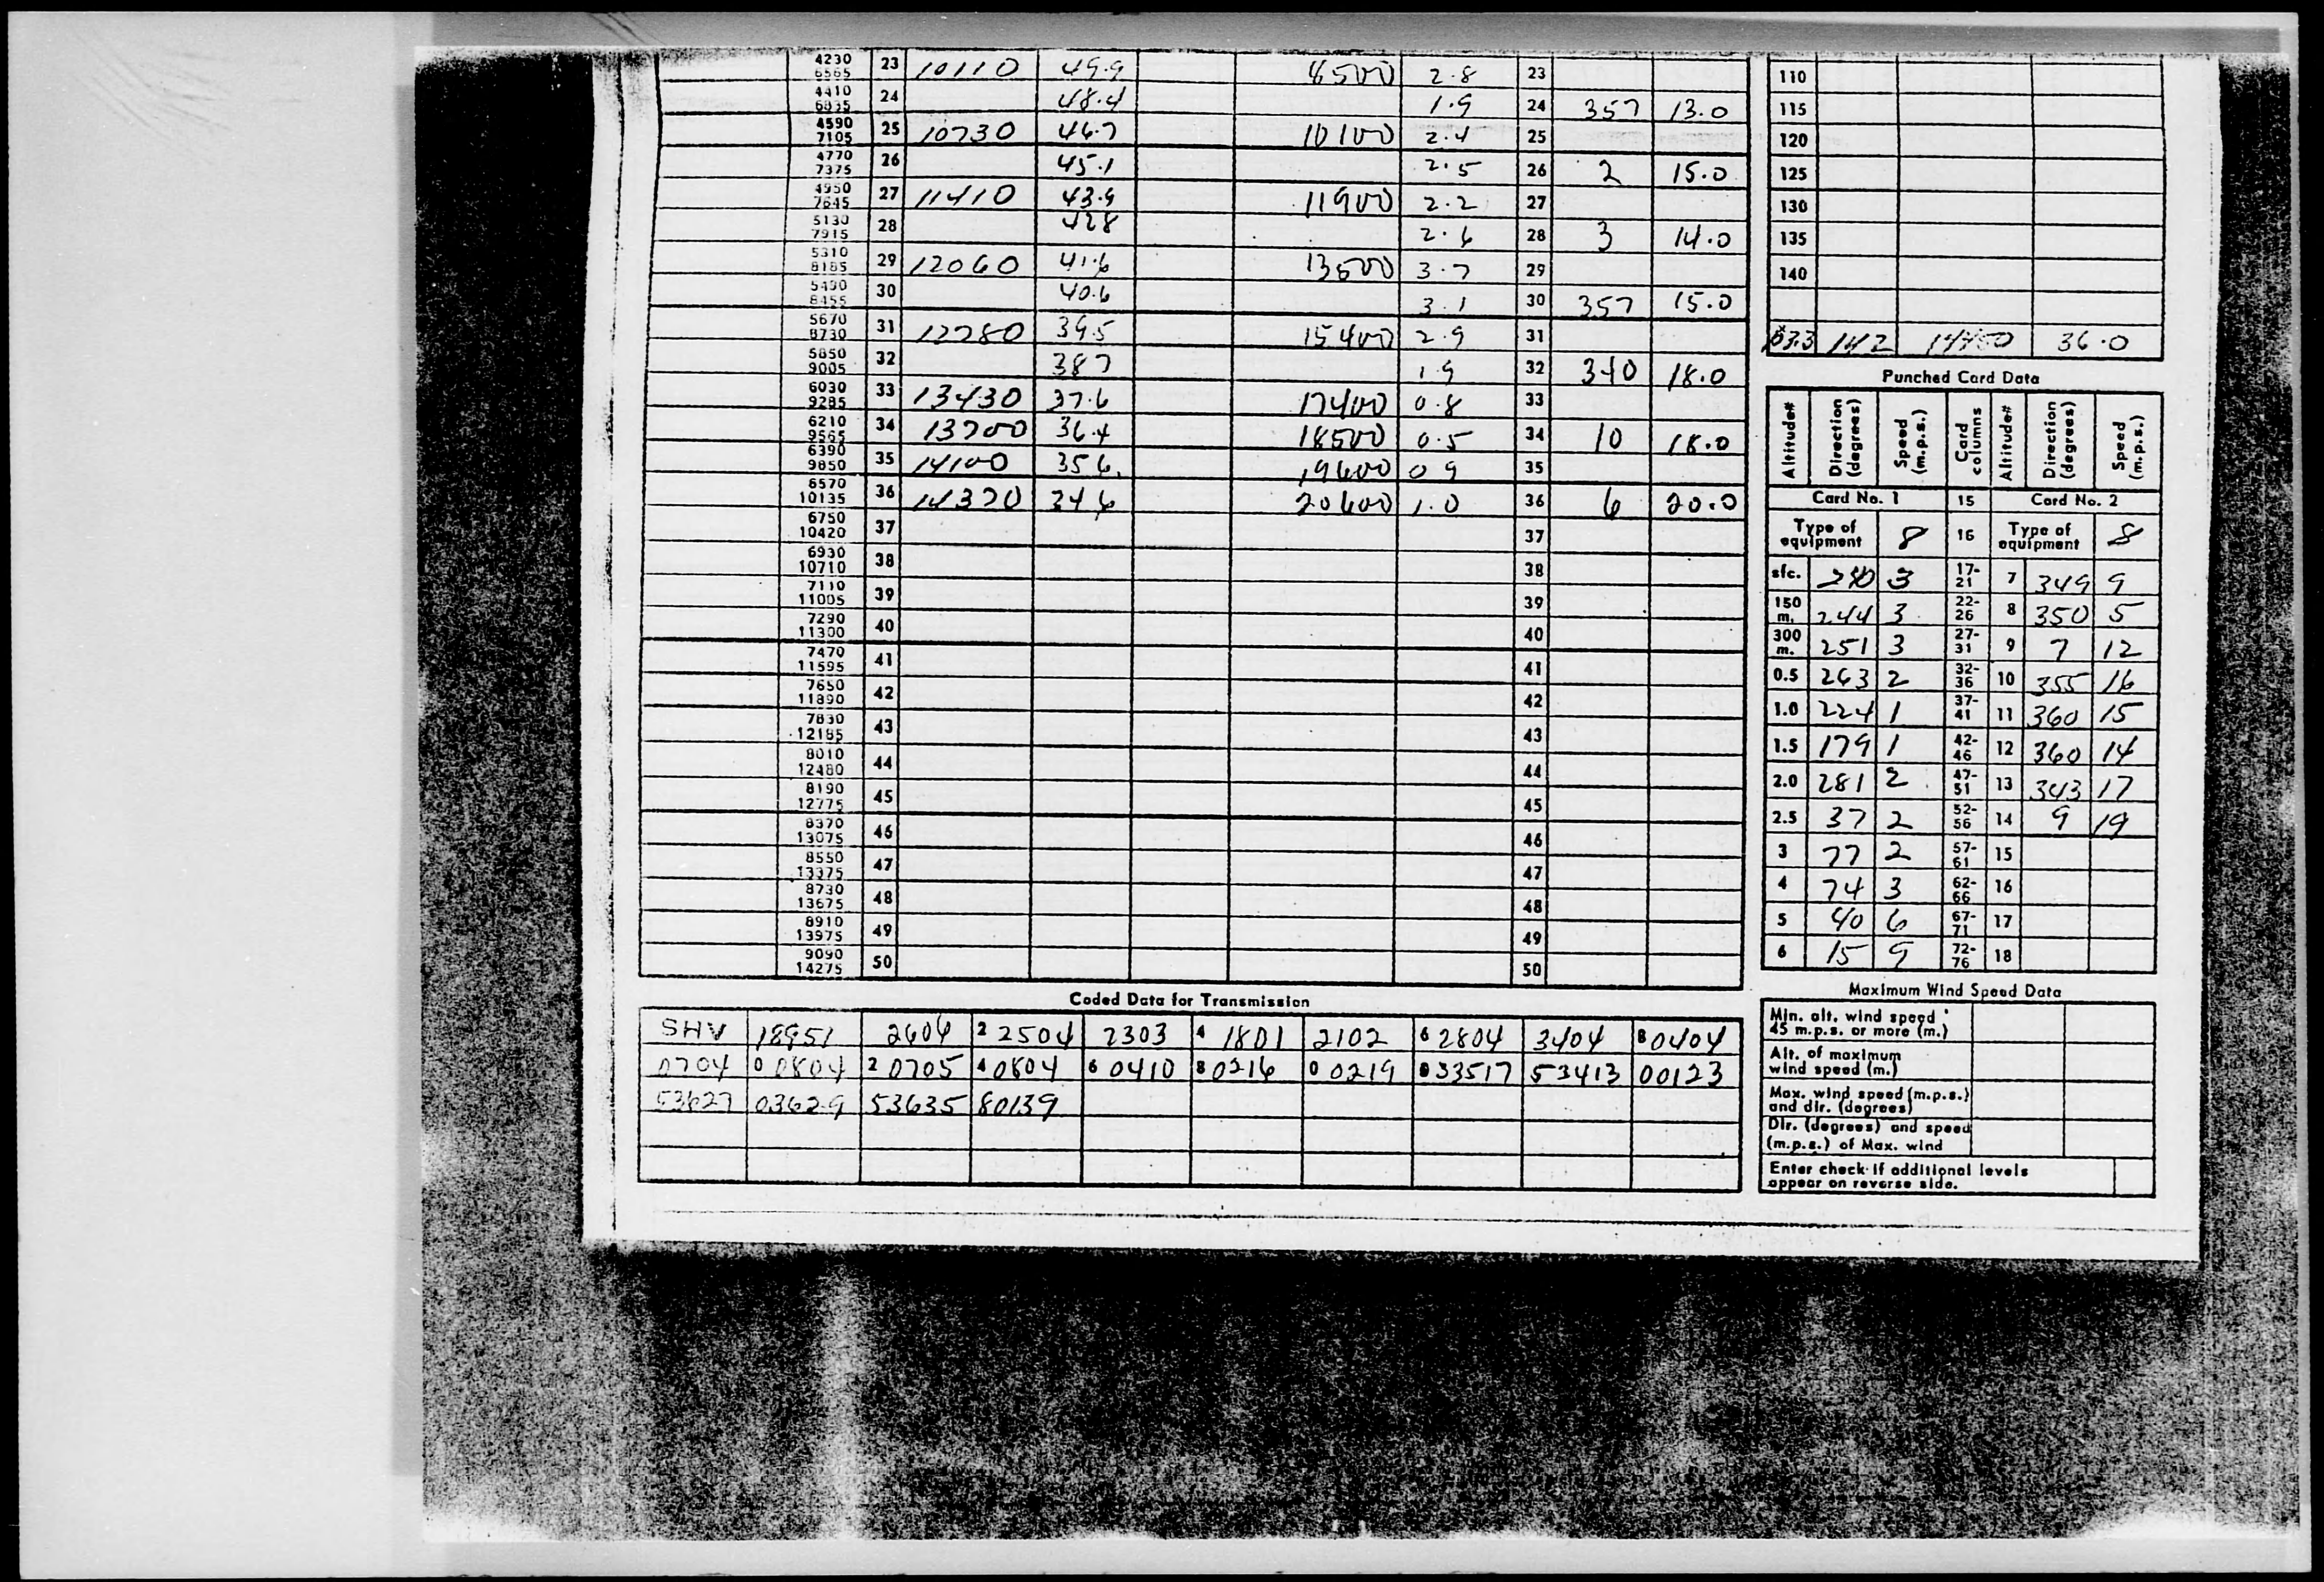 4230 6565 23 10110 49.9 8500 2.8 23 110
4410 6835 24 48.4 1.9 24 357 13.0 115
4590 7105 25 10730 46.7 10100 2.4 25 120
4770 7375 26 45.1 2.5 26 2 15.0 125
4950 7645 27 11410 43.9 11900 2.2 27 130
5130 7915 28 428 2.6 28 3 14.0 135
5310 8185 29 12060 41.6 13500 3.7 29 140
5490 8455 30 40.6 3.1 30 357 15.0
5670 8730 31 12780 39.5 15400 2.9 31 142 36.0
5850 9005 32 387 1.9 32 340 18.0
Punched Card Data
6030 9285 33 13430 37.6 17400 0.8 33
6210 9565 34 13700 36.4 18500 0.5 34 10 18.0
6390 9850 35 14100 35.6 19600 0.9 35
Altitude# Direction (degrees) Speed (m.p.s.) Card columns Altitude# Direction (degrees) Speed (m.p.s.)
6570 10135 36 14370 34.6 20600 1.0 36 6 20.0
Card No. 1 15 Card No. 2
6750 10420 37 37
Type of equipment 8 16 Type of equipment 8
6930 10710 38 38
sfc. 240 3 17-21 7 349 9
7110 11005 39 39
150 m. 244 3 22-26 8 350 5
7290 11300 40 40
300 m. 251 3 27-31 9 7 12
7470 11595 41 41
0.5 263 2 32-36 10 355 16
7650 11890 42 42
1.0 224 1 37-41 11 360 15
7830 12185 43 43
1.5 179 1 42-46 12 360 14
8010 12480 44 44
2.0 281 2 47-51 13 343 17
8190 12775 45 45
2.5 37 2 52-56 14 9 19
8370 13075 46 46
3 77 2 57-61 15
8550 13375 47 47
4 74 3 62-66 16
8730 13675 48 48
5 40 6 67-71 17
8910 13975 49 49
6 15 9 72-76 18
9090 14275 50 50
Coded Data for Transmission
SHV 18951 2604 2 2504 2303 4 1801 2102 6 2804 3404 8 0404
0704 0 0804 2 0705 4 0804 6 0410 8 0216 0 0219 33517 53413 00123
53627 03629 53635 80139
Maximum Wind Speed Data
Min. alt. wind speed
45 m.p.s. or more (m.)
Alt. of maximum
wind speed (m.)
Max. wind speed (m.p.s.)
and dir. (degrees)
Dir. (degrees) and speed
(m.p.s.) of Max. wind
Enter check if additional levels
appear on reverse side.